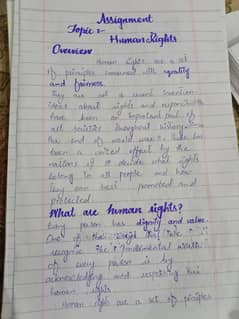 Assignment
Topic :- Human Rights
Overview
Human rights are a set
of principles concerned with equality
and fairness.
They are not a recent invention
Ideas about rights and responsibility
have been an important part of
all societies throughout history.
the end of world war 2 there has
been a united effort by the
nations of to decide what rights
belong to all people and how
they can best promoted and
protected
What are human rights?
Every person has dignity and value.
One of the ways that
recognise the fundamental worth
of every person is by
acknowledging and respecting his
human rights
Human rights are a set of principles